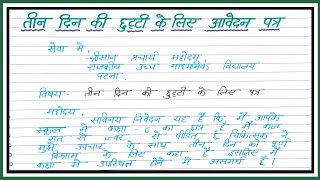 तीन दिन की छुट्टी के लिए आवेदन पत्र
सेवा में,
श्रीमान प्रचार्य महोदय,
राजकीय उच्च माध्यमिक विद्यालय
पटना
विषय - तीन दिन की छुट्टी के लिए पत्र
महोदय,
सविनय निवेदन यह है कि मैं आपके
स्कूल में कक्षा - 6 का छात्र हूँ मैं कल
रात से ज्वर से पीड़ित है चिकित्सक ने
मुझे उपचार के साथ तीन दिन का पूर्ण
विश्राम के लिए कहा है इसलिए मैं
कक्षा में उपस्थित होने में असमर्थ हूँ।